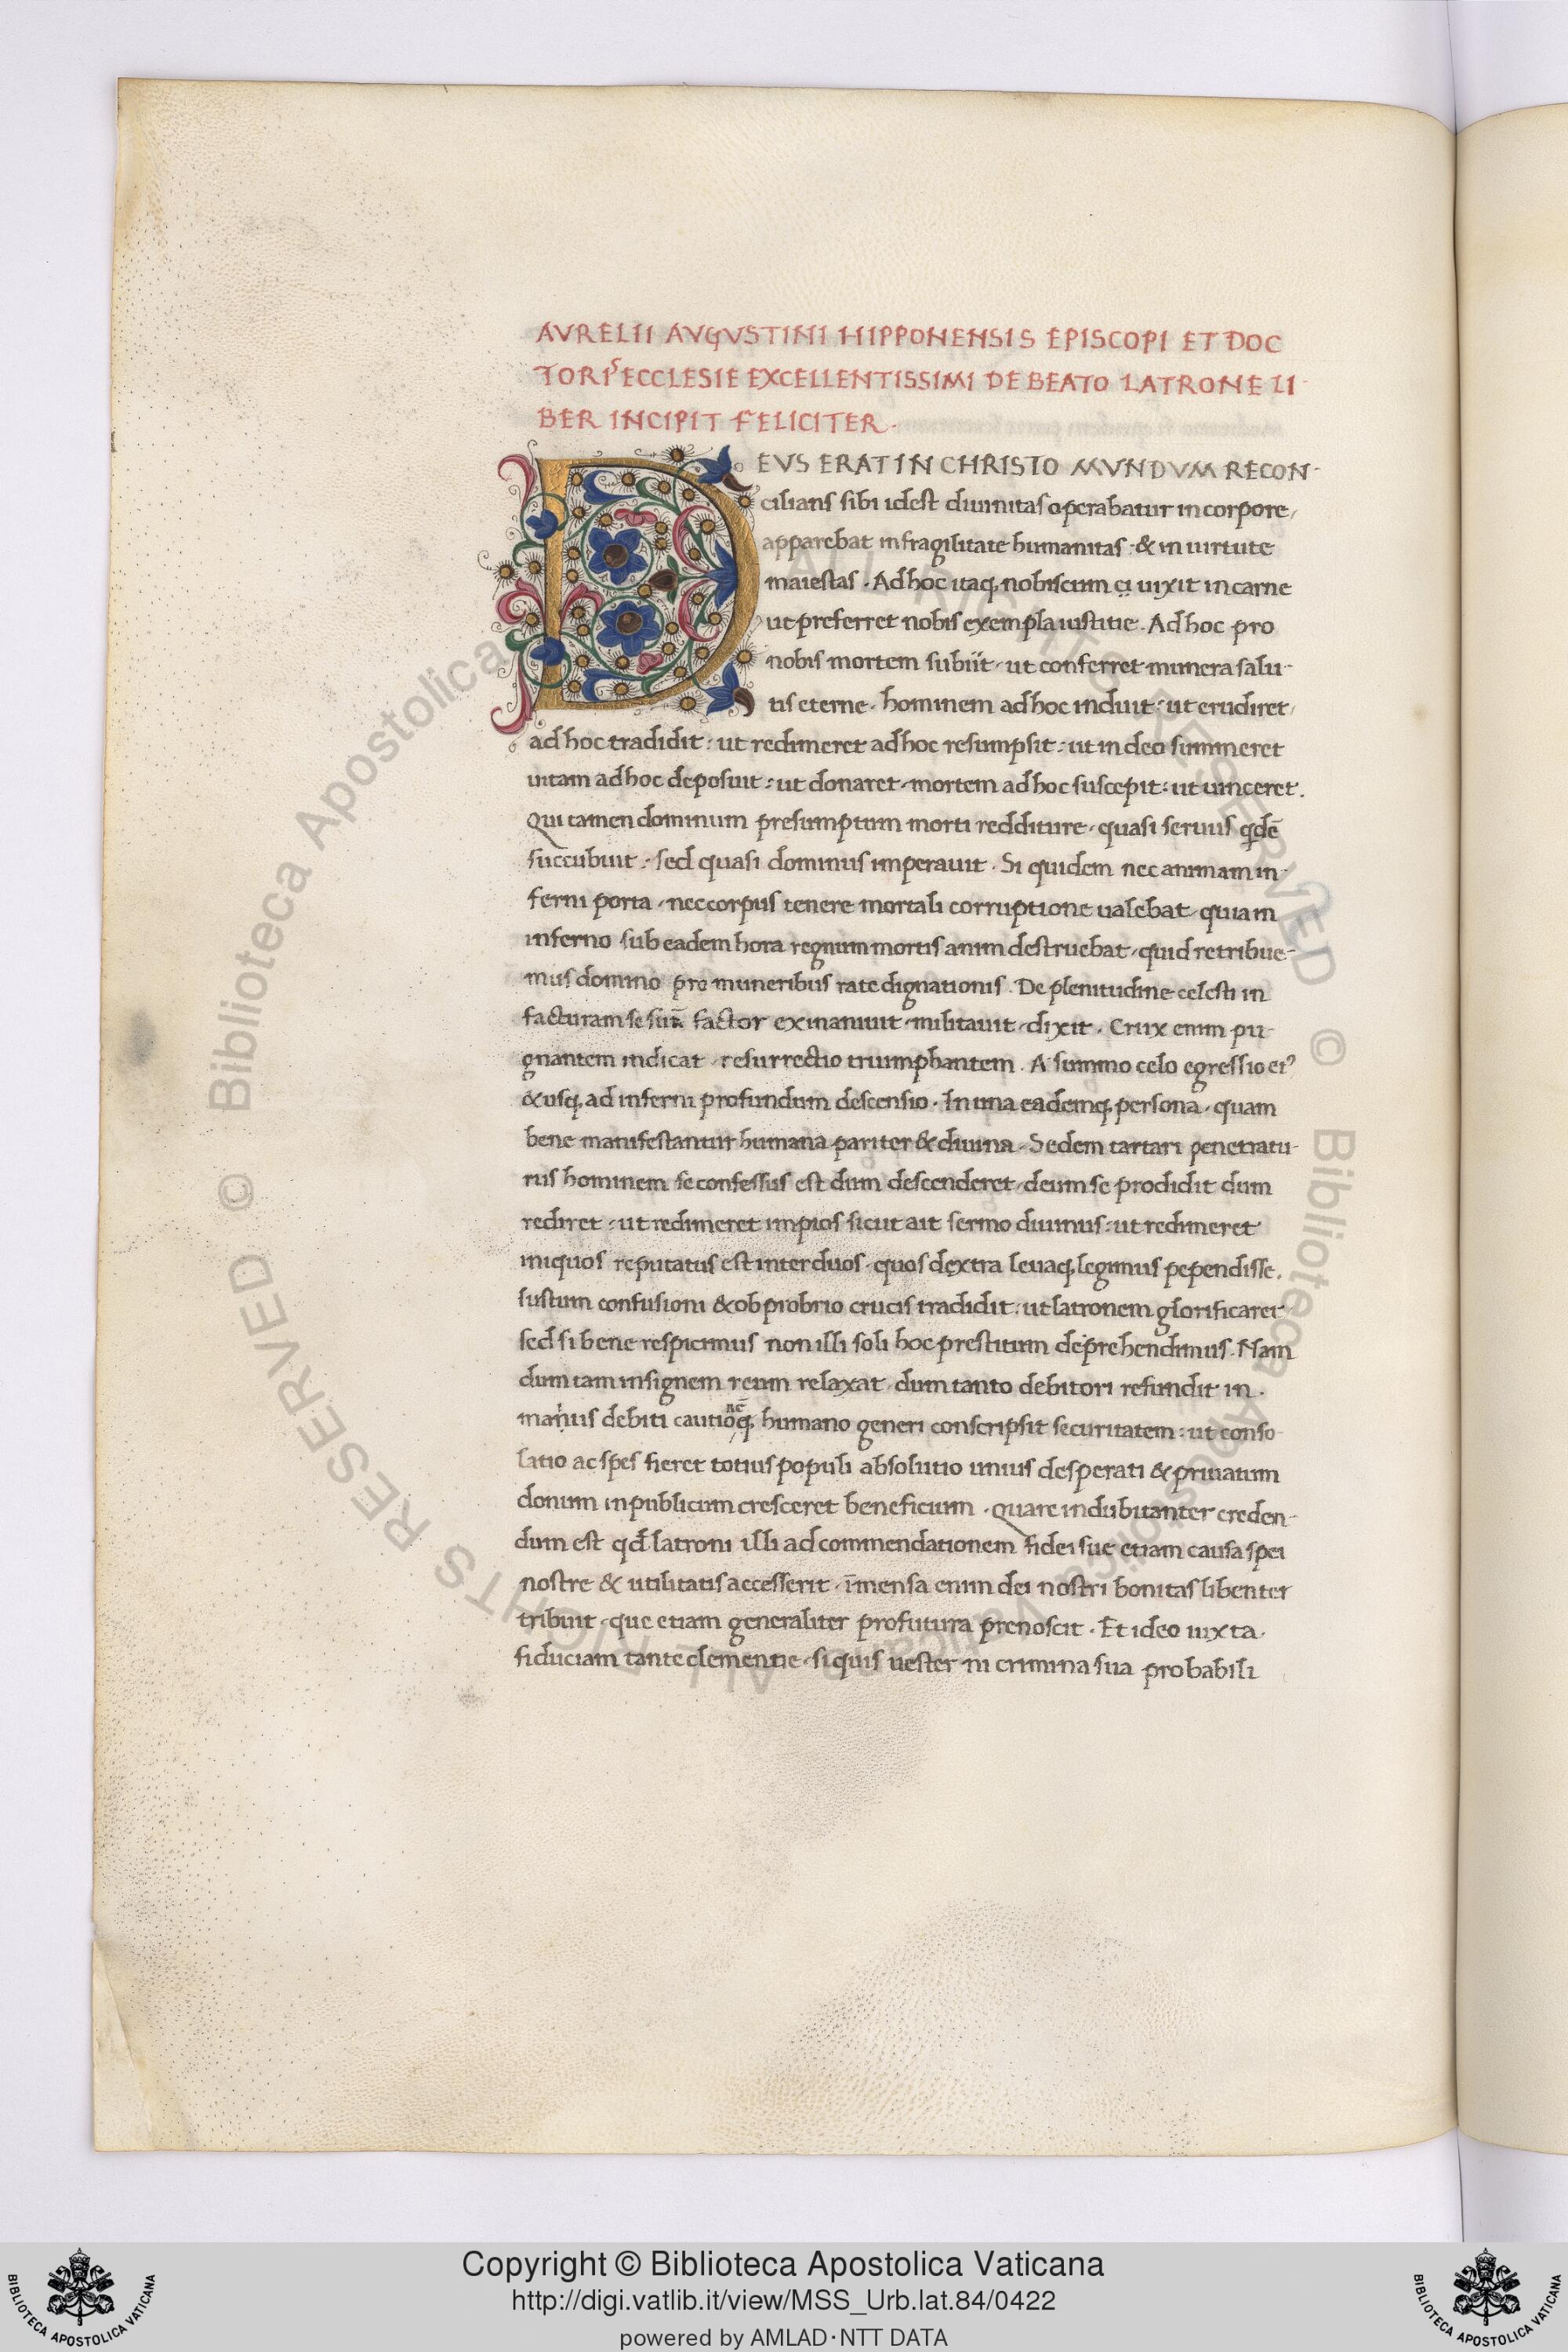 AVRELII AVGVSTINI HIPPONENSIS EPISCOPI ET DOC
TORIˢ ECCLESIE EXCELLENTISSIMI DE BEATO LATRONE LI
BER INCIPIT FELICITER.
DEVS ERAT IN CHRISTO MVNDVM RECON-
cilians sibi idest diuinitas operabatur in corpore,
apparebat in fragilitate humanitas · & in uirtute
maiestas · Ad hoc itaq; nobiscum uixit in carne
ut preferret nobis exempla iustitie. Ad hoc pro
nobis mortem subiit · ut conferret munera salu-
tis eterne · hominem ad hoc induit: ut erudiret,
ad hoc tradidit: ut redimeret ad hoc resumpsit: ut in deo summeret
uitam ad hoc deposuit: ut donaret · mortem ad hoc suscepit: ut uinceret.
Qui tamen dominum presumptum morti redditure · quasi seruus qdē
succubuit · sed quasi dominus imperauit · Si quidem nec animam in-
ferni porta · nec corpus tenere mortali corruptione ualebat · quia in
inferno sub eadem hora regnum mortis anim destruebat · quid retribue-
mus domino pro muneribus rate dignationis · De plenitudine celesti in
facturam se factor exinaniuit · militauit · dixit · Crux enim pu-
gnantem indicat · resurrectio triumphantem. A summo celo egressio eiꝰ
& usq; ad inferni profundum descensio · In una eademq; persona · quam
bene manifestantur humana pariter & diuina · Sedem tartari penetratu-
rus hominem se confessus est dum descenderet · deum se prodidit dum
rediret · ut redimeret impios sicut ait sermo diuinus: ut redimeret
iniquos reputatus est inter duos · quos dextra leuaq; legimus pependisse.
Iustum confusioni & obprobrio crucis tradidit: ut latronem glorificaret
sed si bene respicimus non illi soli hoc prestitum deprehendimus. Nam
dum tam insignem reum relaxat · dum tanto debitori refundit in ·
manus debiti cautionēq; humano generi conscripsit securitatem: ut conso-
latio ac spes fieret totius populi absolutio unius desperati & priuatum
donum in publicum cresceret beneficium · quare indubitanter creden-
dum est qđ latroni illi ad commendationem fidei sue etiam causa spei
nostre & utilitatis accesserit · īmensa enim dei nostri bonitas libenter
tribuit · que etiam generaliter profutura prenoscit · Et ideo iuxta ·
fiduciam tante clementie · si quis uester ni crimina sua probabili
© Biblioteca Apostolica Vaticana ALL RIGHTS RESERVED
© Biblioteca Apostolica Vaticana ALL RIGHTS RESERVED
Copyright © Biblioteca Apostolica Vaticana
http://digi.vatlib.it/view/MSS_Urb.lat.84/0422
powered by AMLAD·NTT DATA
BIBLIOTECA APOSTOLICA VATICANA
BIBLIOTECA APOSTOLICA VATICANA